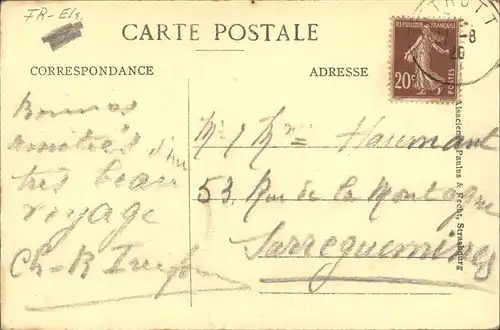 FR-Els
CARTE POSTALE
CORRESPONDANCE
ADRESSE
REPUBLIQUE FRANÇAISE
20c
POSTES
TROTT
-8
26
Bonnes
amitiés d'un
très beau
voyage
Ch-R
Mr / Mme Haumant
53, Rue de la Montagne
Sarreguemines
Paulus & Recht, Strasbourg